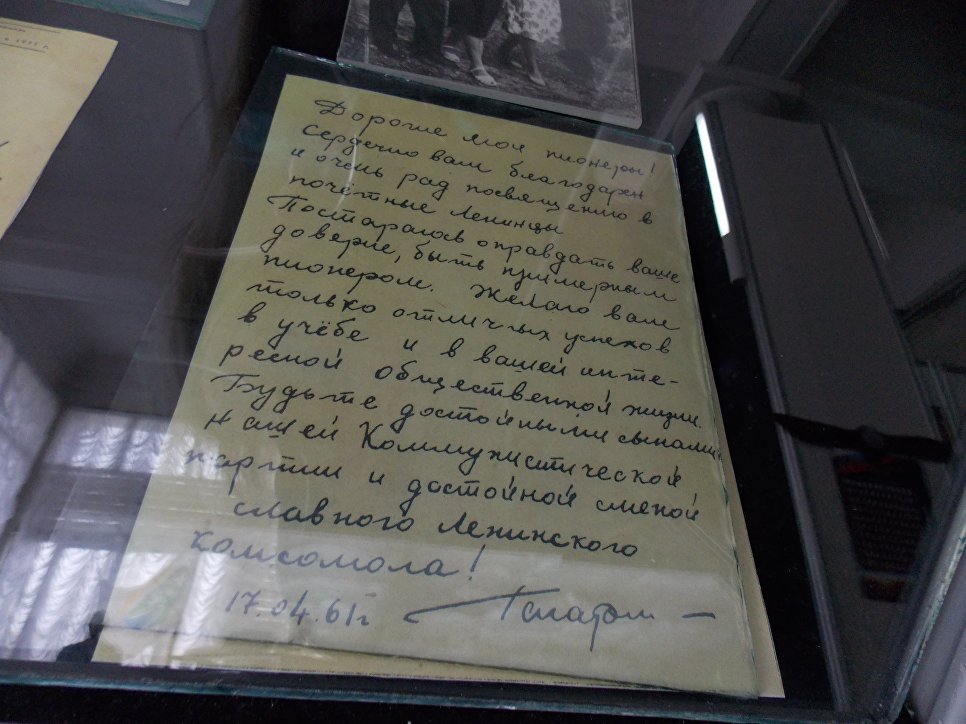 1971 г.
Дорогие мои пионеры!
Сердечно вам благодарен
и очень рад посвящению в
почётные Ленинцы
Постараюсь оправдать ваше
доверие, быть примерным
пионером. Желаю вам
только отличных успехов
в учёбе и в вашей инте-
ресной общественной жизни.
Будьте достойными сынами
нашей Коммунистической
партии и достойной сменой
славного Ленинского
комсомола!
17.04.61г